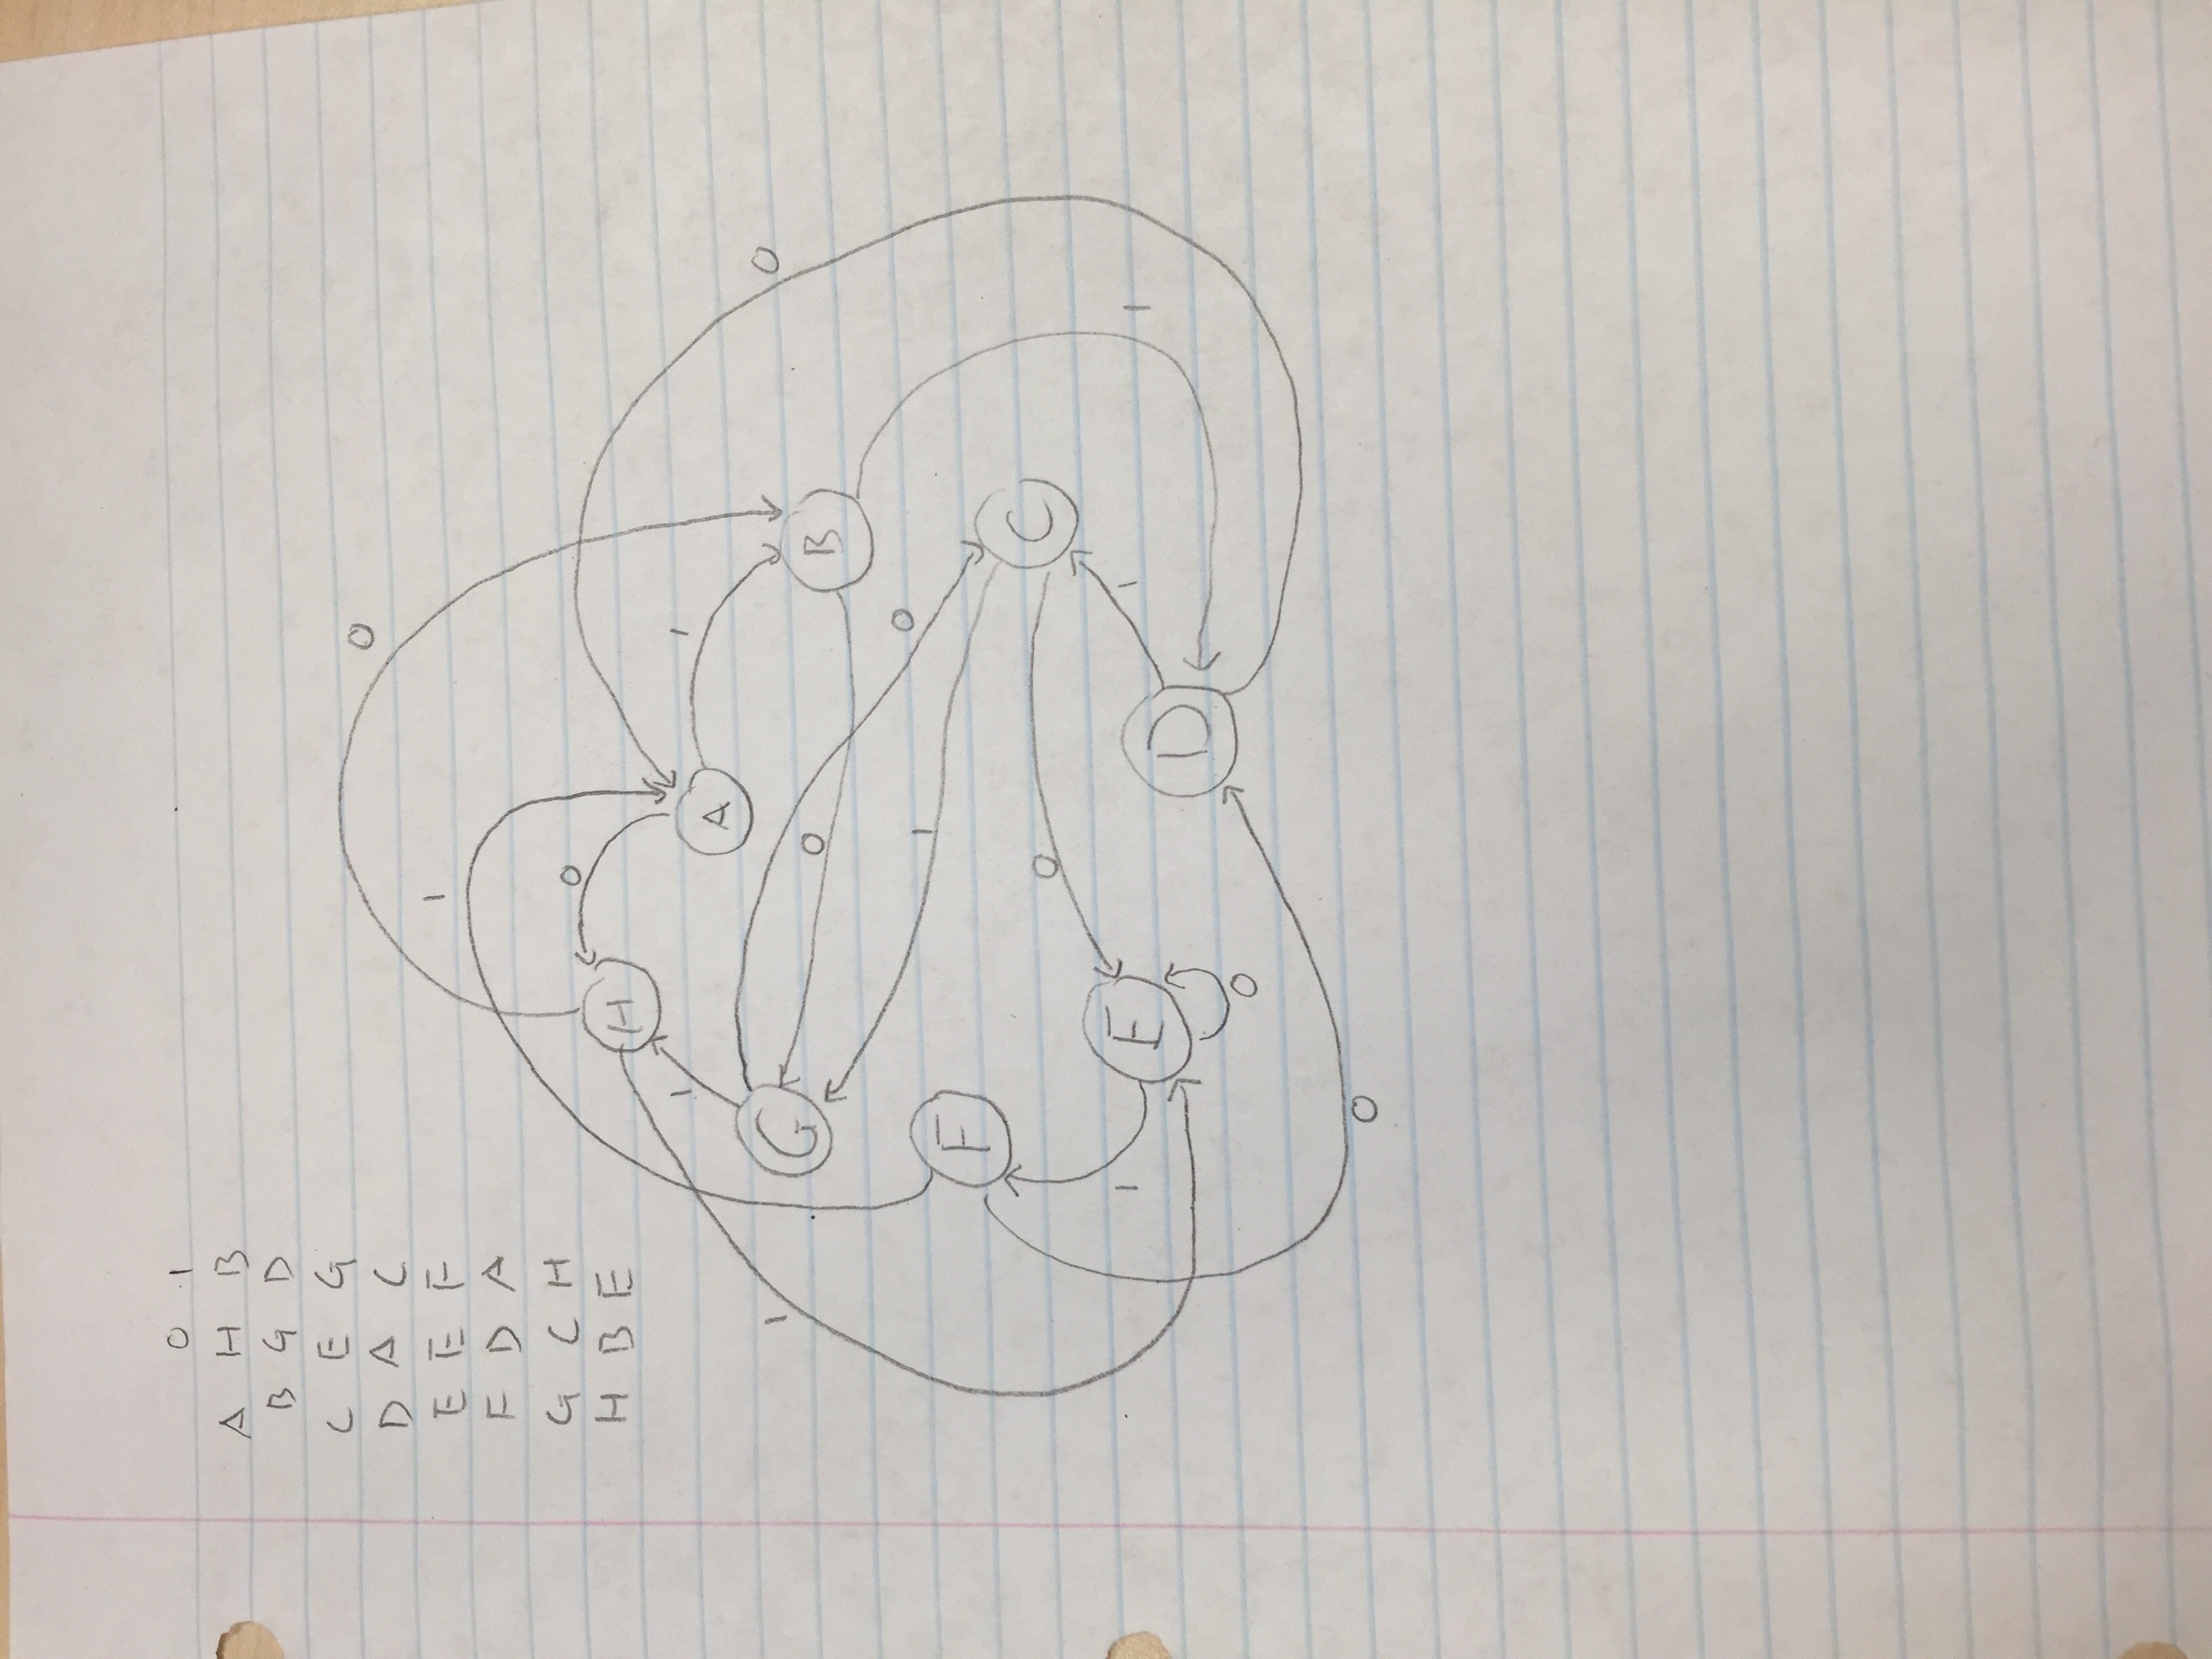 0 1
A H B
B G D
C E G
D A C
E E F
F D A
G C H
H B E
0
1
0
H
1
A
1
0
1
G
0
B
0
1
F
C
0
1
E
1
1
D
0
0